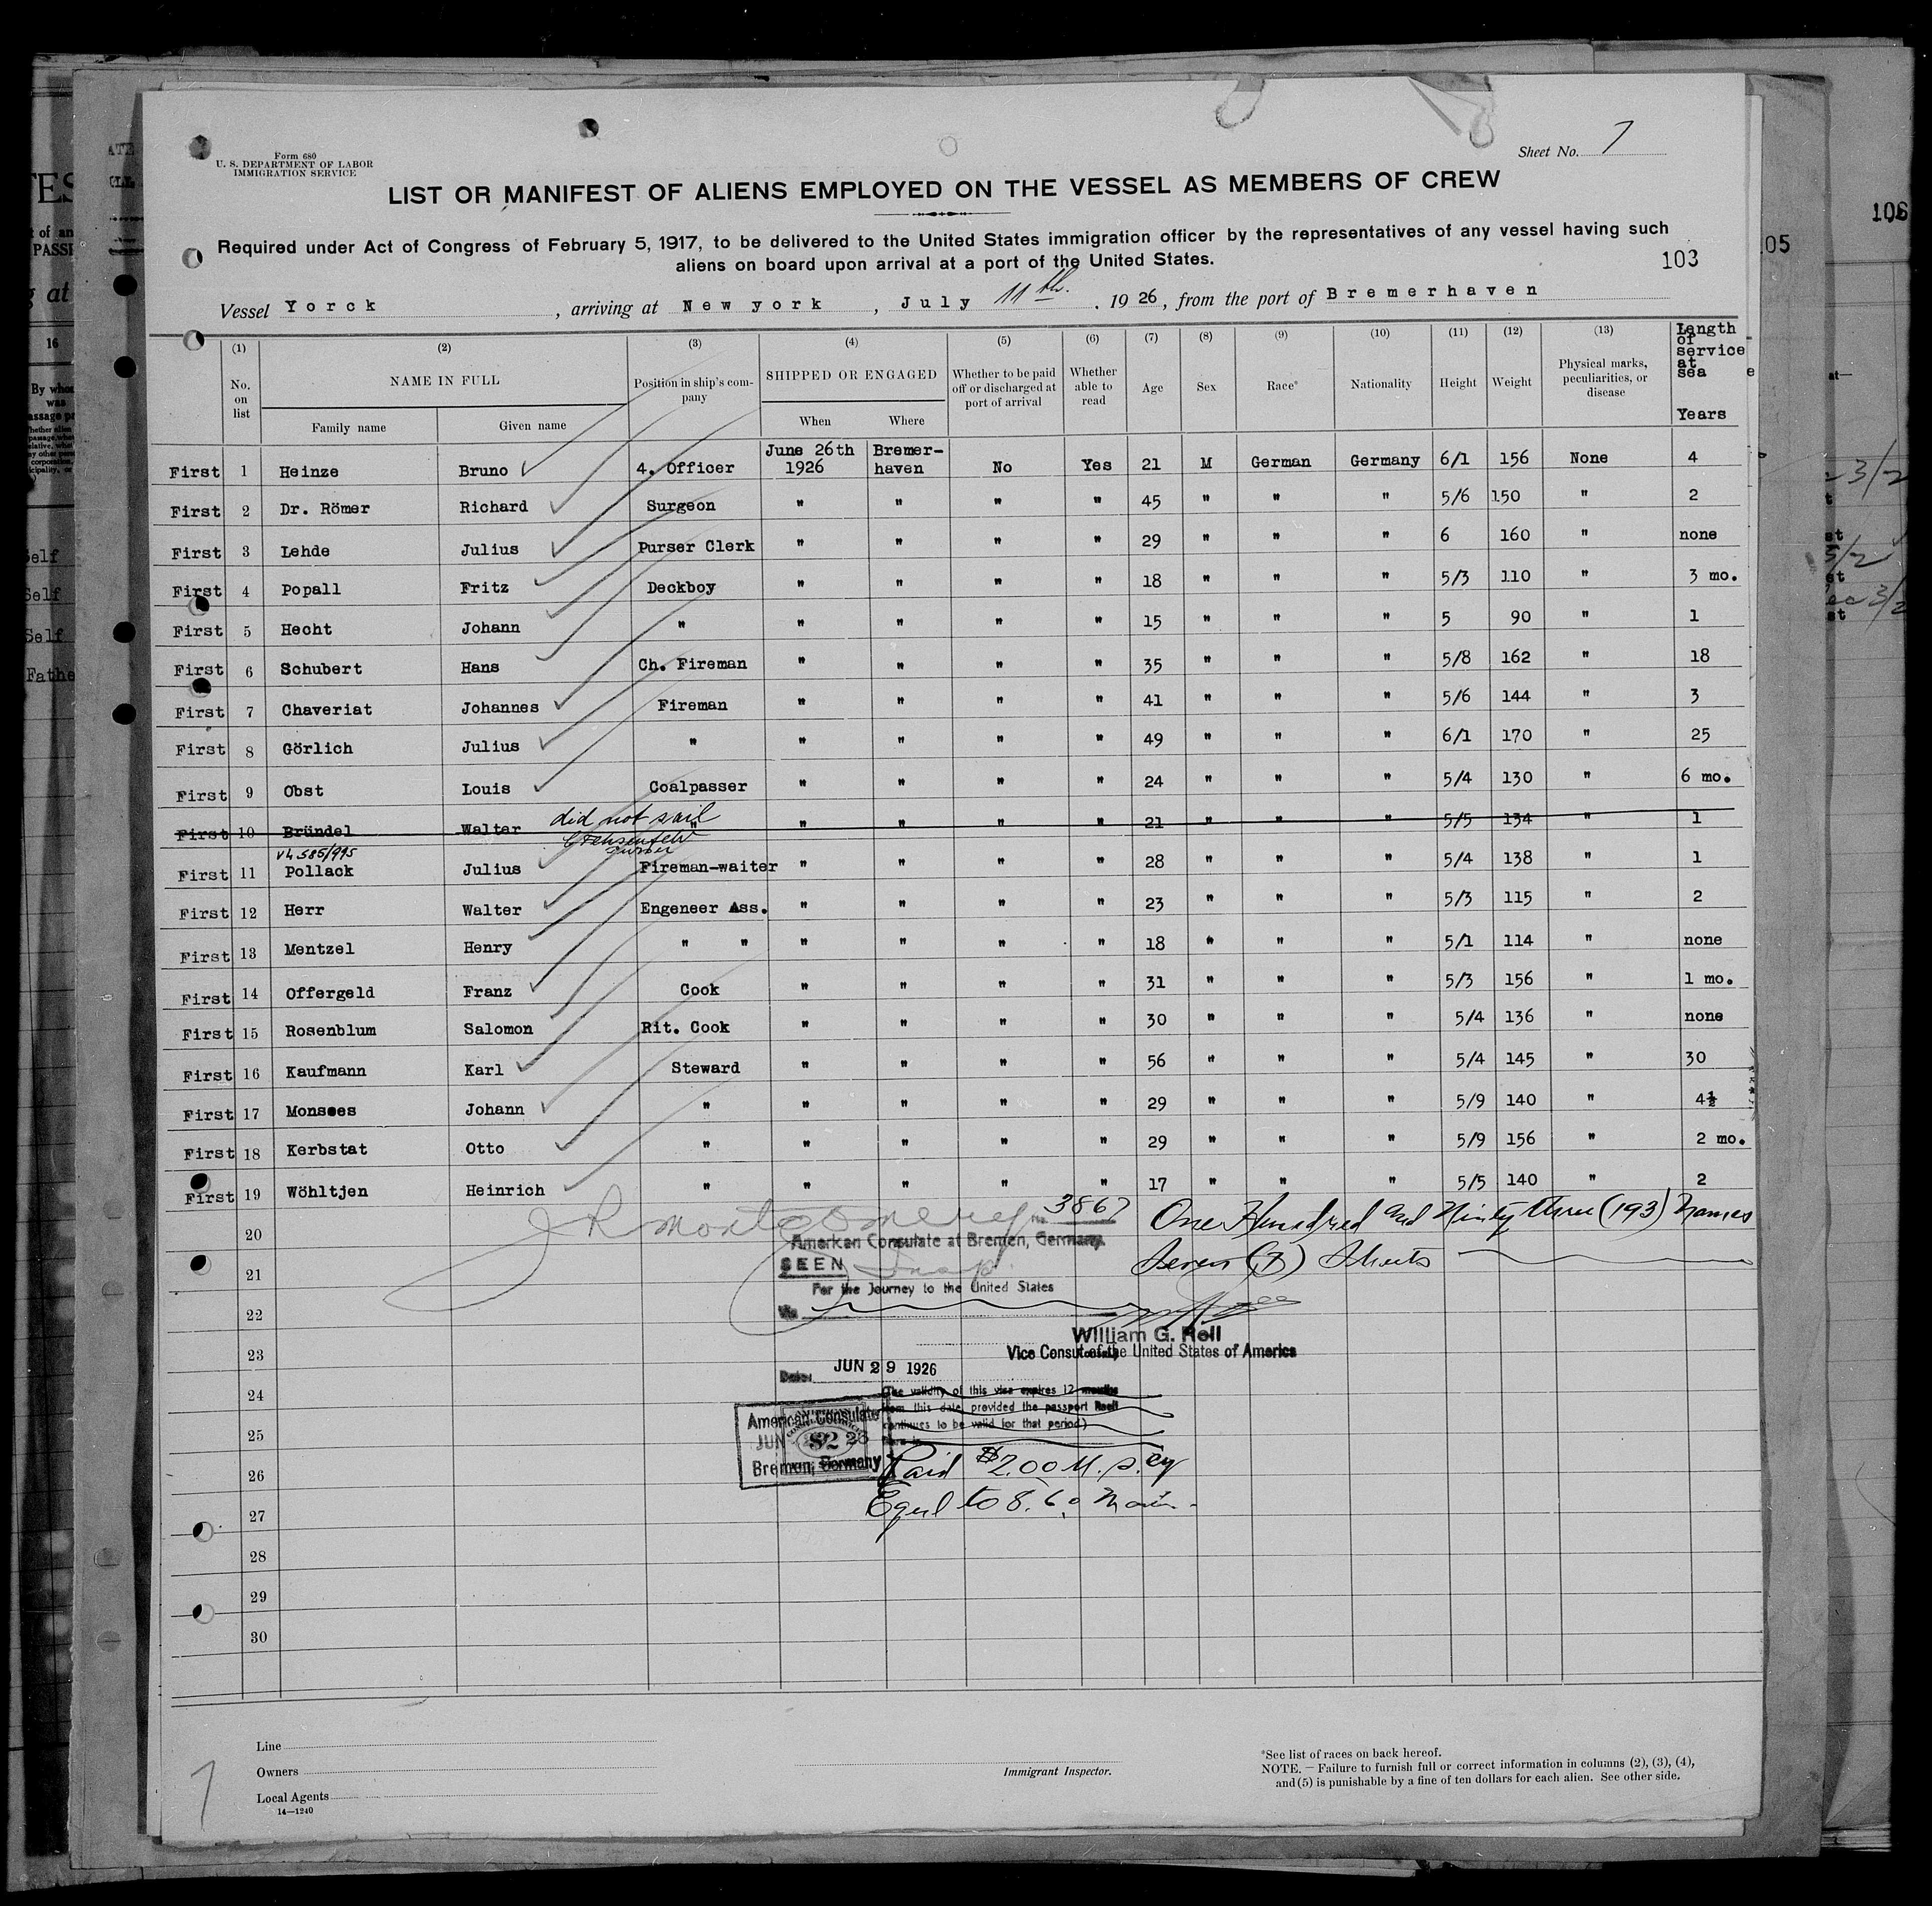 Form 680
U. S. DEPARTMENT OF LABOR
IMMIGRATION SERVICE
Sheet No. 7
LIST OR MANIFEST OF ALIENS EMPLOYED ON THE VESSEL AS MEMBERS OF CREW
Required under Act of Congress of February 5, 1917, to be delivered to the United States immigration officer by the representatives of any vessel having such
aliens on board upon arrival at a port of the United States.
103
Vessel Yorck, arriving at New york, July 11th. 1926, from the port of Bremerhaven
(1) (2) (3) (4) (5) (6) (7) (8) (9) (10) (11) (12) (13)
No. on list NAME IN FULL Family name Given name Position in ship's company SHIPPED OR ENGAGED When Where Whether to be paid off or discharged at port of arrival Whether able to read Age Sex Race* Nationality Height Weight Physical marks, peculiarities, or disease Length of service at sea Years
First 1 Heinze Bruno 4. Officer June 26th 1926 Bremer-haven No Yes 21 M German Germany 6/1 156 None 4
First 2 Dr. Römer Richard Surgeon " " " " 45 " " " 5/6 150 " 2
First 3 Lehde Julius Purser Clerk " " " " 29 " " " 6 160 " none
First 4 Popall Fritz Deckboy " " " " 18 " " " 5/3 110 " 3 mo.
First 5 Hecht Johann " " " " " 15 " " " 5 90 " 1
First 6 Schubert Hans Ch. Fireman " " " " 35 " " " 5/8 162 " 18
First 7 Chaveriat Johannes Fireman " " " " 41 " " " 5/6 144 " 3
First 8 Görlich Julius " " " " " 49 " " " 6/1 170 " 25
First 9 Obst Louis Coalpasser " " " " 24 " " " 5/4 130 " 6 mo.
did not sail
First 10 Bründel Walter " " " " " 21 " " " 5/5 134 " 1
purser
First 11 Pollack Julius Fireman-waiter " " " " 28 " " " 5/4 138 " 1
First 12 Herr Walter Engeneer Ass. " " " " 23 " " " 5/3 115 " 2
First 13 Mentzel Henry " " " " " " 18 " " " 5/1 114 " none
First 14 Offergeld Franz Cook " " " " 31 " " " 5/3 156 " 1 mo.
First 15 Rosenblum Salomon Rit. Cook " " " " 30 " " " 5/4 136 " none
First 16 Kaufmann Karl Steward " " " " 56 " " " 5/4 145 " 30
First 17 Monsees Johann " " " " " 29 " " " 5/9 140 " 4½
First 18 Kerbstat Otto " " " " " 29 " " " 5/9 156 " 2 mo.
First 19 Wöhltjen Heinrich " " " " " 17 " " " 5/5 140 " 2
20 J R Montgomery No 3867 One Hundred and Ninety three (193) Names
American Consulate at Bremen, Germany.
21 SEEN Insp. Seven (7) Sheets
For the Journey to the United States
22 Via
William G. Roll
23 Vice Consul of the United States of America
Date: JUN 29 1926
24 (The validity of this visa expires 12 months
from this date provided the passport
25 continues to be valid for that period)
American Consulate
JUN 29 26
Bremen, Germany
26 Paid $2.00 U.S. cy
27 Equal to 8.60 Mark
28
29
30
Line
Owners
Local Agents
14—1240
Immigrant Inspector.
*See list of races on back hereof.
NOTE. — Failure to furnish full or correct information in columns (2), (3), (4),
and (5) is punishable by a fine of ten dollars for each alien. See other side.
7
05
106